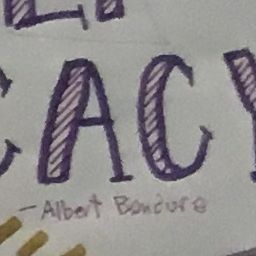 CACY
- Albert Bandura